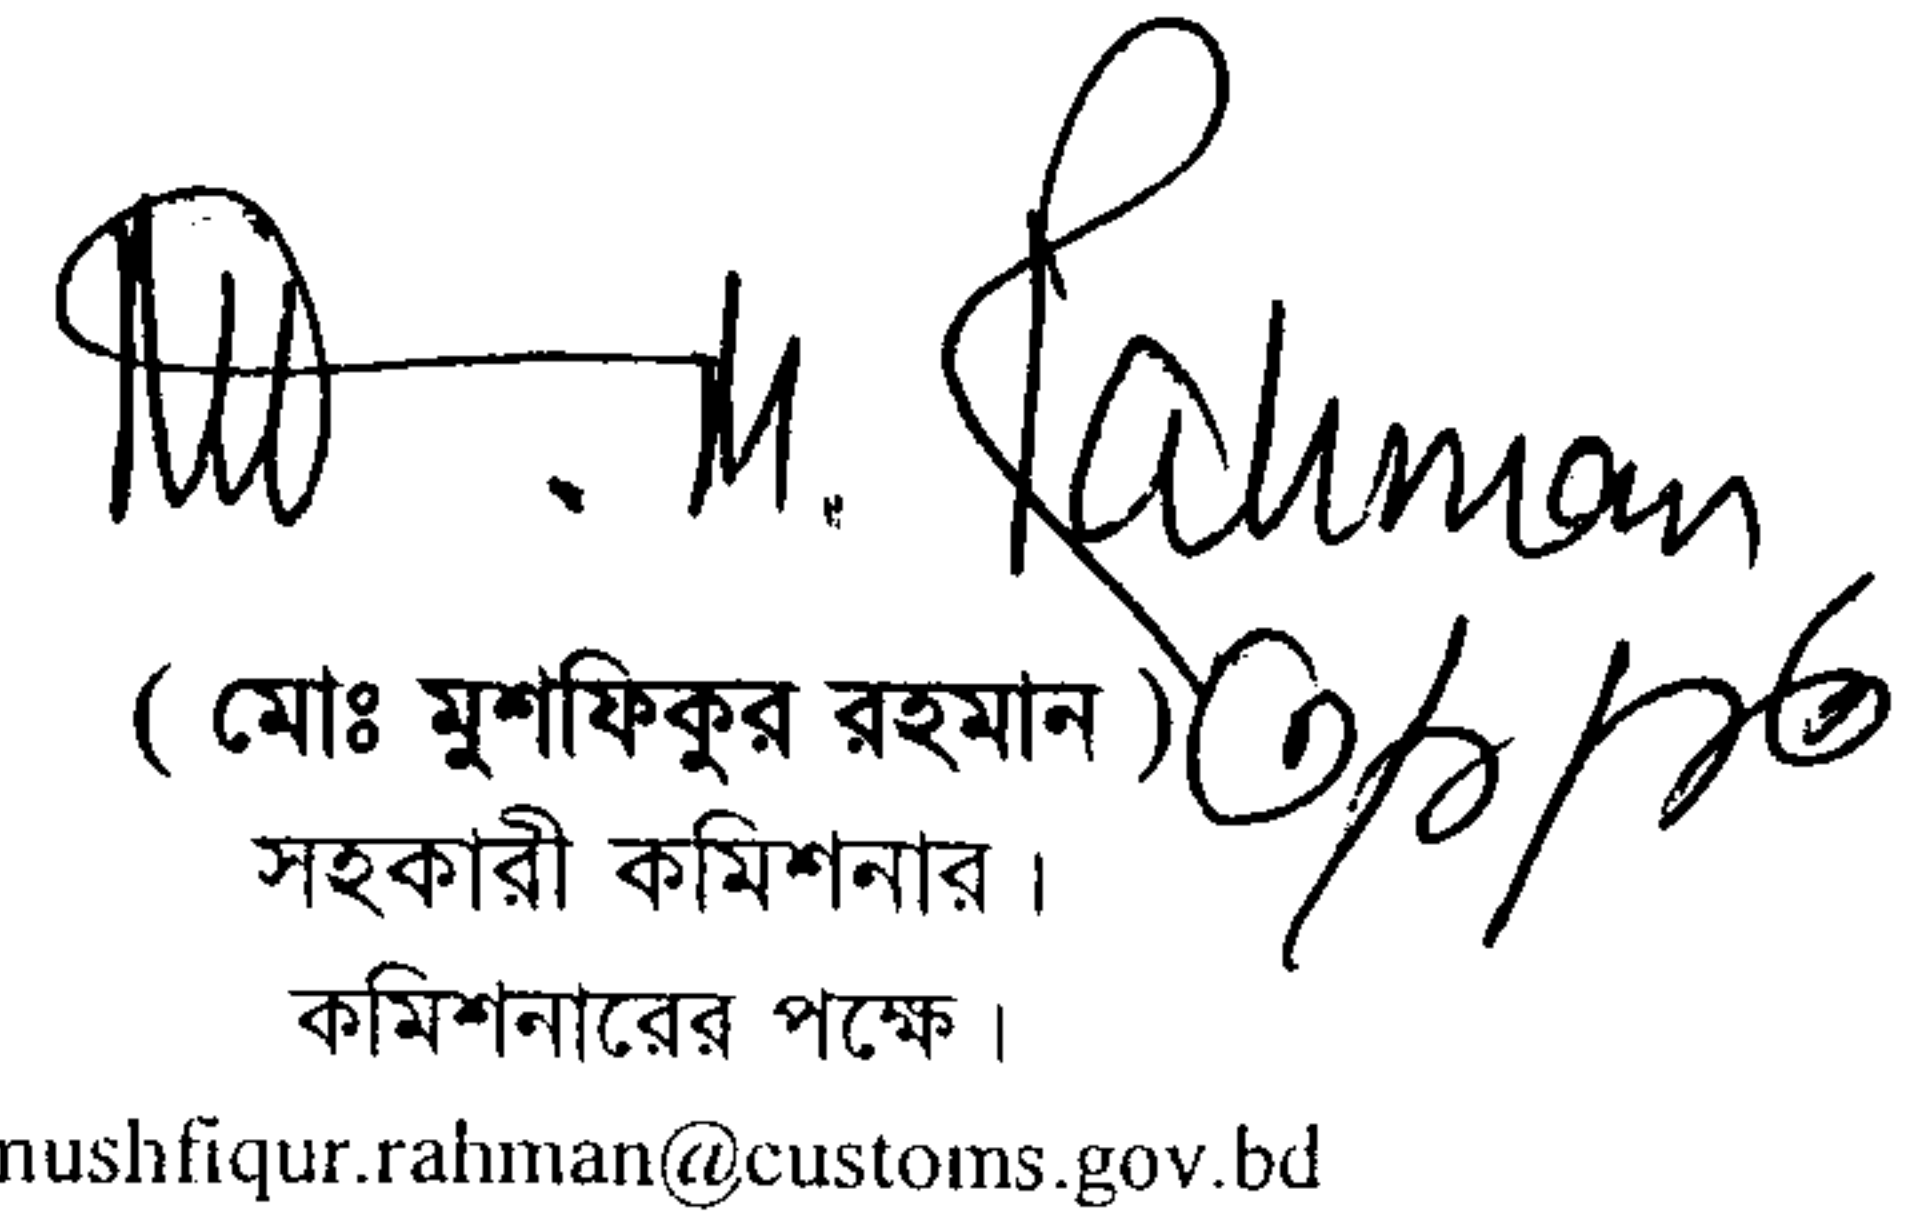 Md. M. Rahman
( মোঃ মুশফিকুর রহমান )
সহকারী কমিশনার ।
কমিশনারের পক্ষে ।
mushfiqur.rahman@customs.gov.bd